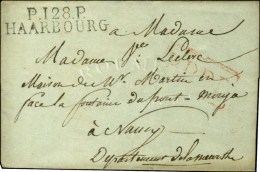 P.128.P.
HAARBOURG
à Madame
Madame Ve Leclerc
Maison de Mr. Martin en
face la fontaine du pont-mouja
à Nancy
Département de la meurthe